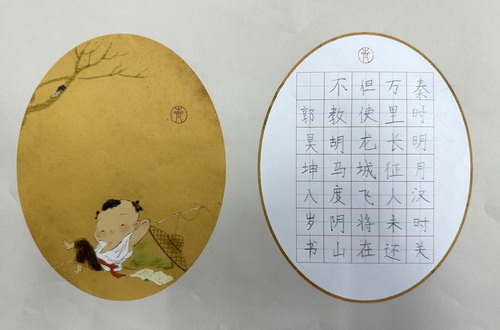 秦时明月汉时关
万里长征人未还
但使龙城飞将在
不教胡马度阴山
郭昊坤八岁书